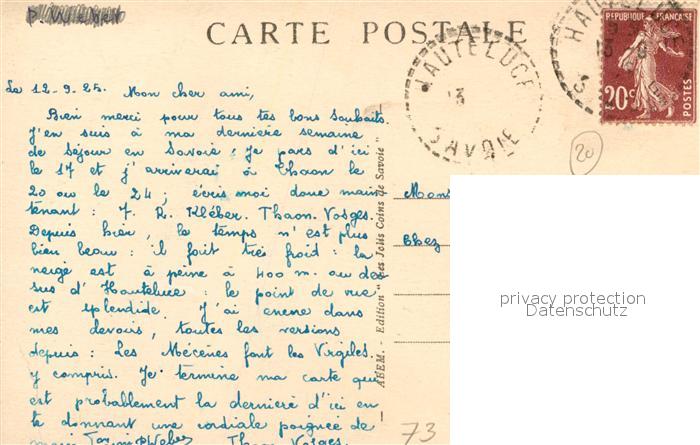 P. Weber
CARTE POSTALE
HAUTELUCE
13
SAVOIE
HAUTELUCE
REPUBLIQUE FRANÇAISE
20c
POSTES
20
Le 12-9-25. Mon cher ami,
Bien merci pour tous tes bons souhaits.
J'en suis à ma dernière semaine
de séjour en Savoie : Je pars d'ici
le 17 et j'arriverai à Thaon le
20 ou le 24 ; écris moi donc main
tenant : 7. R. Kléber. Thaon. Vosges.
Depuis hier, le temps n'est plus
bien beau : il fait très froid : la
neige est à peine à 400 m. au des
sus d'Hauteluce : le point de vue
est splendide. J'ai encore dans
mes devoirs, toutes les versions
depuis : Les Mécènes font les Virgiles.
y compris. Je termine ma carte qui
est probablement la dernière d'ici en
te donnant une cordiale poignée de
main Weber Thaon Vosges.
AHEM. - Edition "Les Jolis Coins de Savoie
Mons
Chez
privacy protection
Datenschutz
73